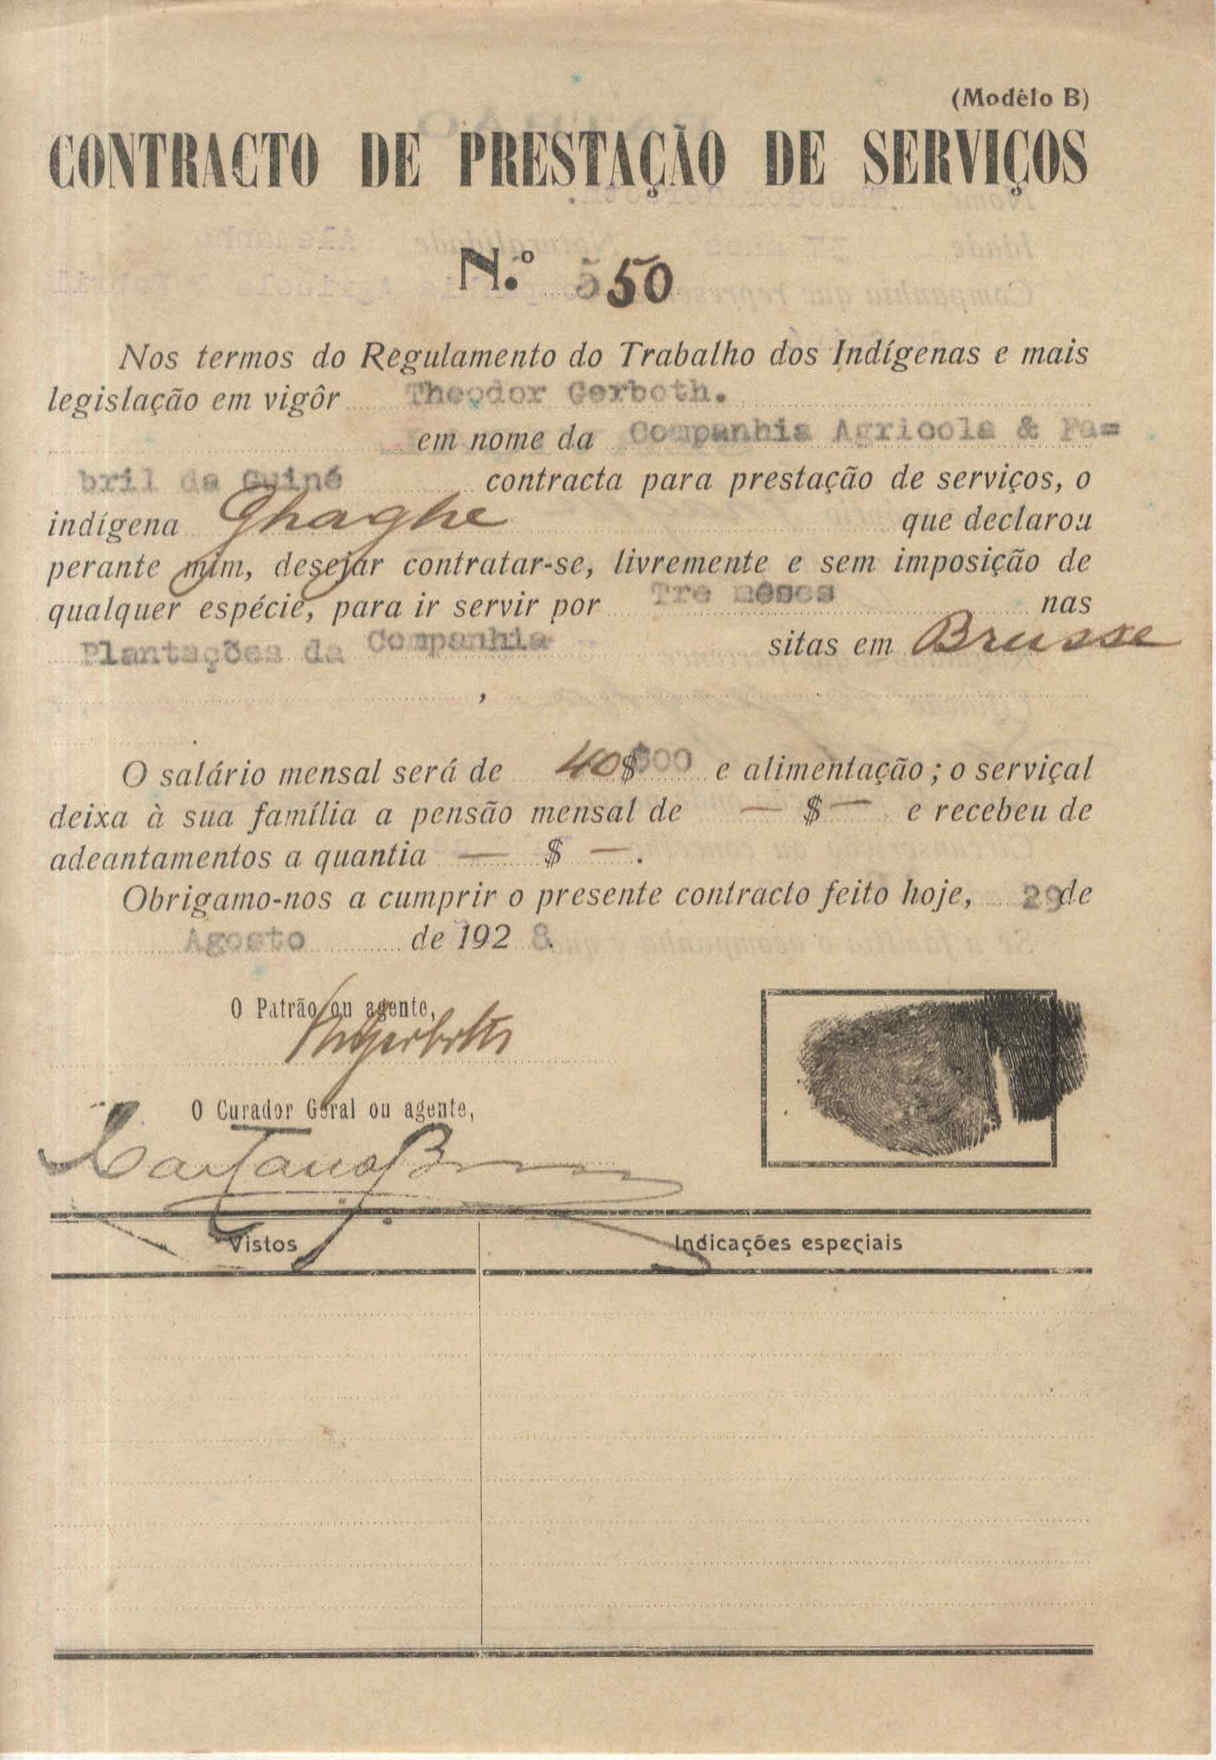 (Modêlo B)
CONTRACTO DE PRESTAÇÃO DE SERVIÇOS
N.º 550
Nos termos do Regulamento do Trabalho dos Indígenas e mais
legislação em vigôr Theodor Gerboth.
em nome da Companhia Agricola & Fa=
bril da Guiné contracta para prestação de serviços, o
indígena Ghaghe que declarou
perante mim, desejar contratar-se, livremente e sem imposição de
qualquer espécie, para ir servir por Tre mêses nas
Plantações da Companhia sitas em Brusse
,
O salário mensal será de 40$000 e alimentação; o serviçal
deixa à sua família a pensão mensal de — $ — e recebeu de
adeantamentos a quantia — $ — .
Obrigamo-nos a cumprir o presente contracto feito hoje, 29 de
Agosto de 1928.
O Patrão ou agente,
O Curador Geral ou agente,
Vistos Indicações especiais